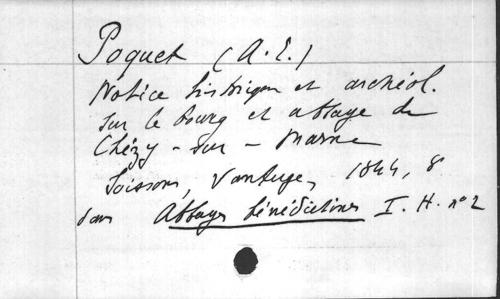 Poquet (A. E.)
Notice historique et archéol.
sur le bourg et abbaye de
Chézy-sur-Marne
Soissons, 1844, 8°
dans Abbayes bénédictines I. H. n° 2